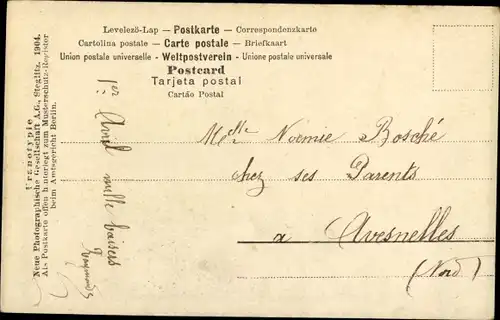 Levelező-Lap — Postkarte — Correspondenzkarte
Cartolina postale — Carte postale — Briefkaart
Union postale universelle — Weltpostverein — Unione postale universale
Postcard
Tarjeta postal
Cartão Postal
Uranotypie
Neue Photographische Gesellschaft A.G., Steglitz. 1904.
Als Postkarte offen hinterlegt zum Musterschutz-Register
beim Amtsgericht Berlin.
1er Avril mille baisers
Melle Noemie Bosché
chez ses Parents
a Avesnelles
(Nord)